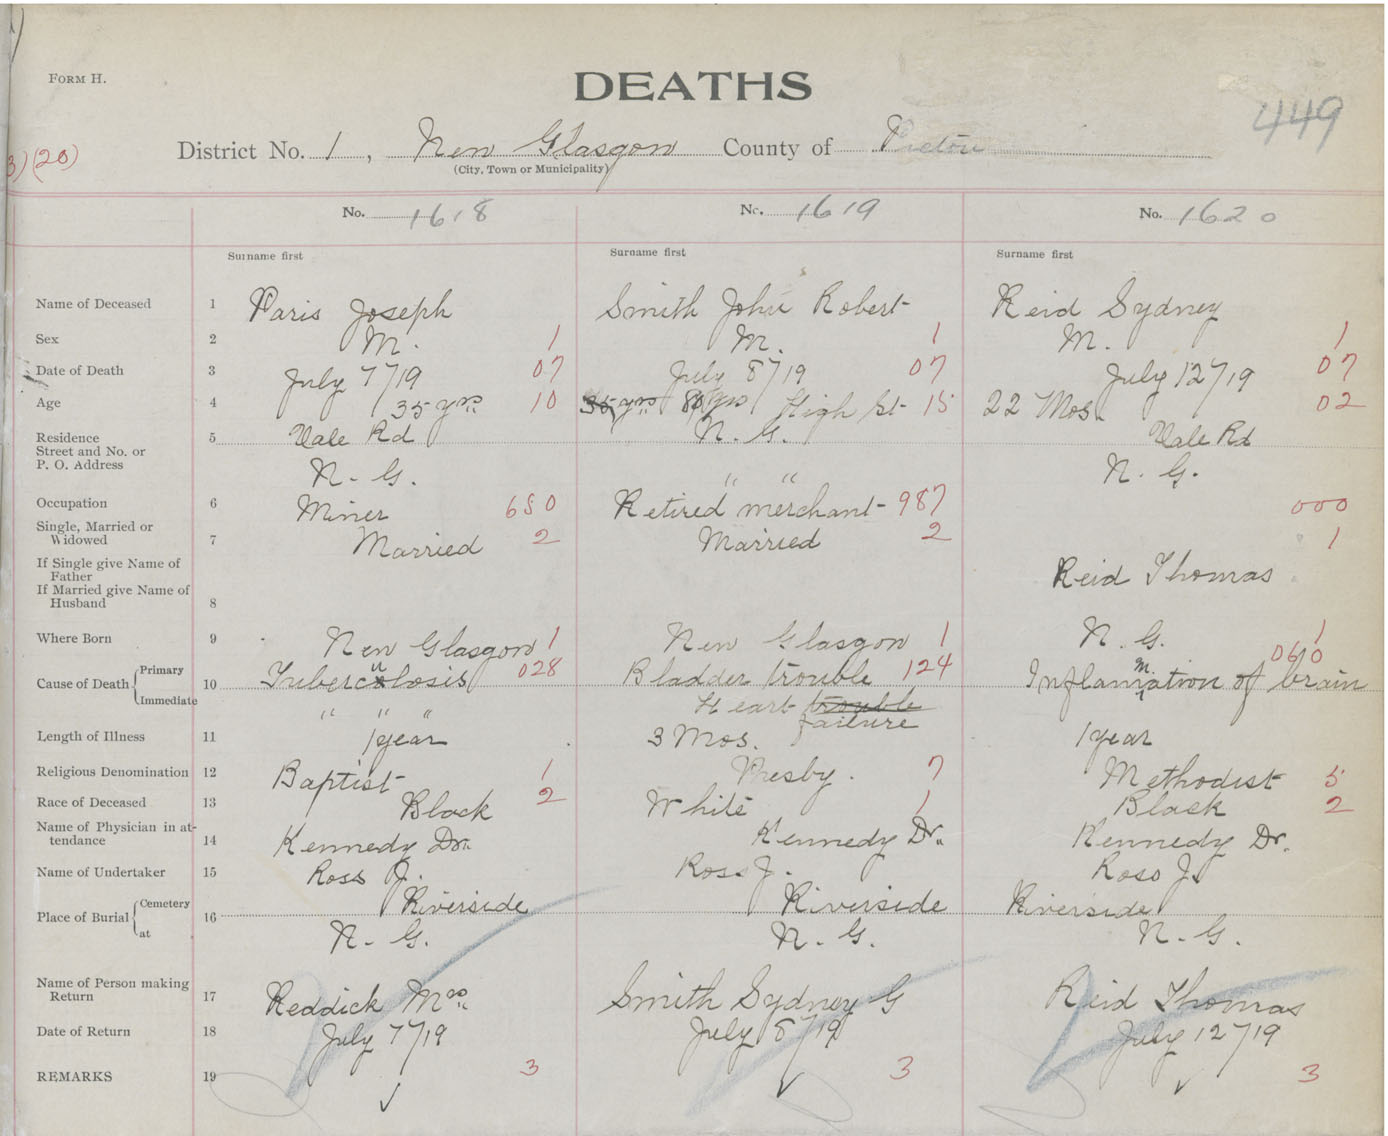 FORM H.
DEATHS
449
3) (20)
District No. 1, New Glasgow County of Pictou
(City, Town or Municipality)
No. 1618 No. 1619 No. 1620
Surname first Surname first Surname first
Name of Deceased 1 Paris Joseph Smith John Robert Reid Sydney
Sex 2 M. 1 M. 1 M. 1
Date of Death 3 July 7/19 07 July 8/19 07 July 12/19 07
Age 4 35 yrs 10 35 yrs 80 yrs High St 15 22 Mos. 02
Residence 5 Vale Rd N. G. Vale Rd
Street and No. or
P. O. Address N. G. " " N. G.
Occupation 6 Miner 650 Retired merchant 987 000
Single, Married or
Widowed 7 Married 2 Married 2 1
If Single give Name of
Father Reid Thomas
If Married give Name of
Husband 8
Where Born 9 New Glasgow 1 New Glasgow 1 N. G. 1
Cause of Death Primary 10 Tuberculosis 028 Bladder trouble 124 Inflammation of brain 060
Immediate " " " Heart trouble failure
Length of Illness 11 1 year 3 Mos. 1 year
Religious Denomination 12 Baptist 1 Presby. 7 Methodist 5
Race of Deceased 13 Black 2 White 1 Black 2
Name of Physician in at-
tendance 14 Kennedy Dr. Kennedy Dr. Kennedy Dr.
Name of Undertaker 15 Ross J. Ross J. Ross J.
Place of Burial Cemetery 16 Riverside Riverside Riverside
at N. G. N. G. N. G.
Name of Person making
Return 17 Reddick Mrs. Smith Sydney G Reid Thomas
Date of Return 18 July 7/19 July 8/19 July 12/19
REMARKS 19 3 3 3